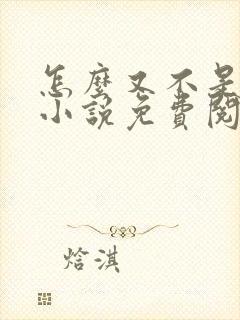 怎麼又不是
小說免費閱
焓淇